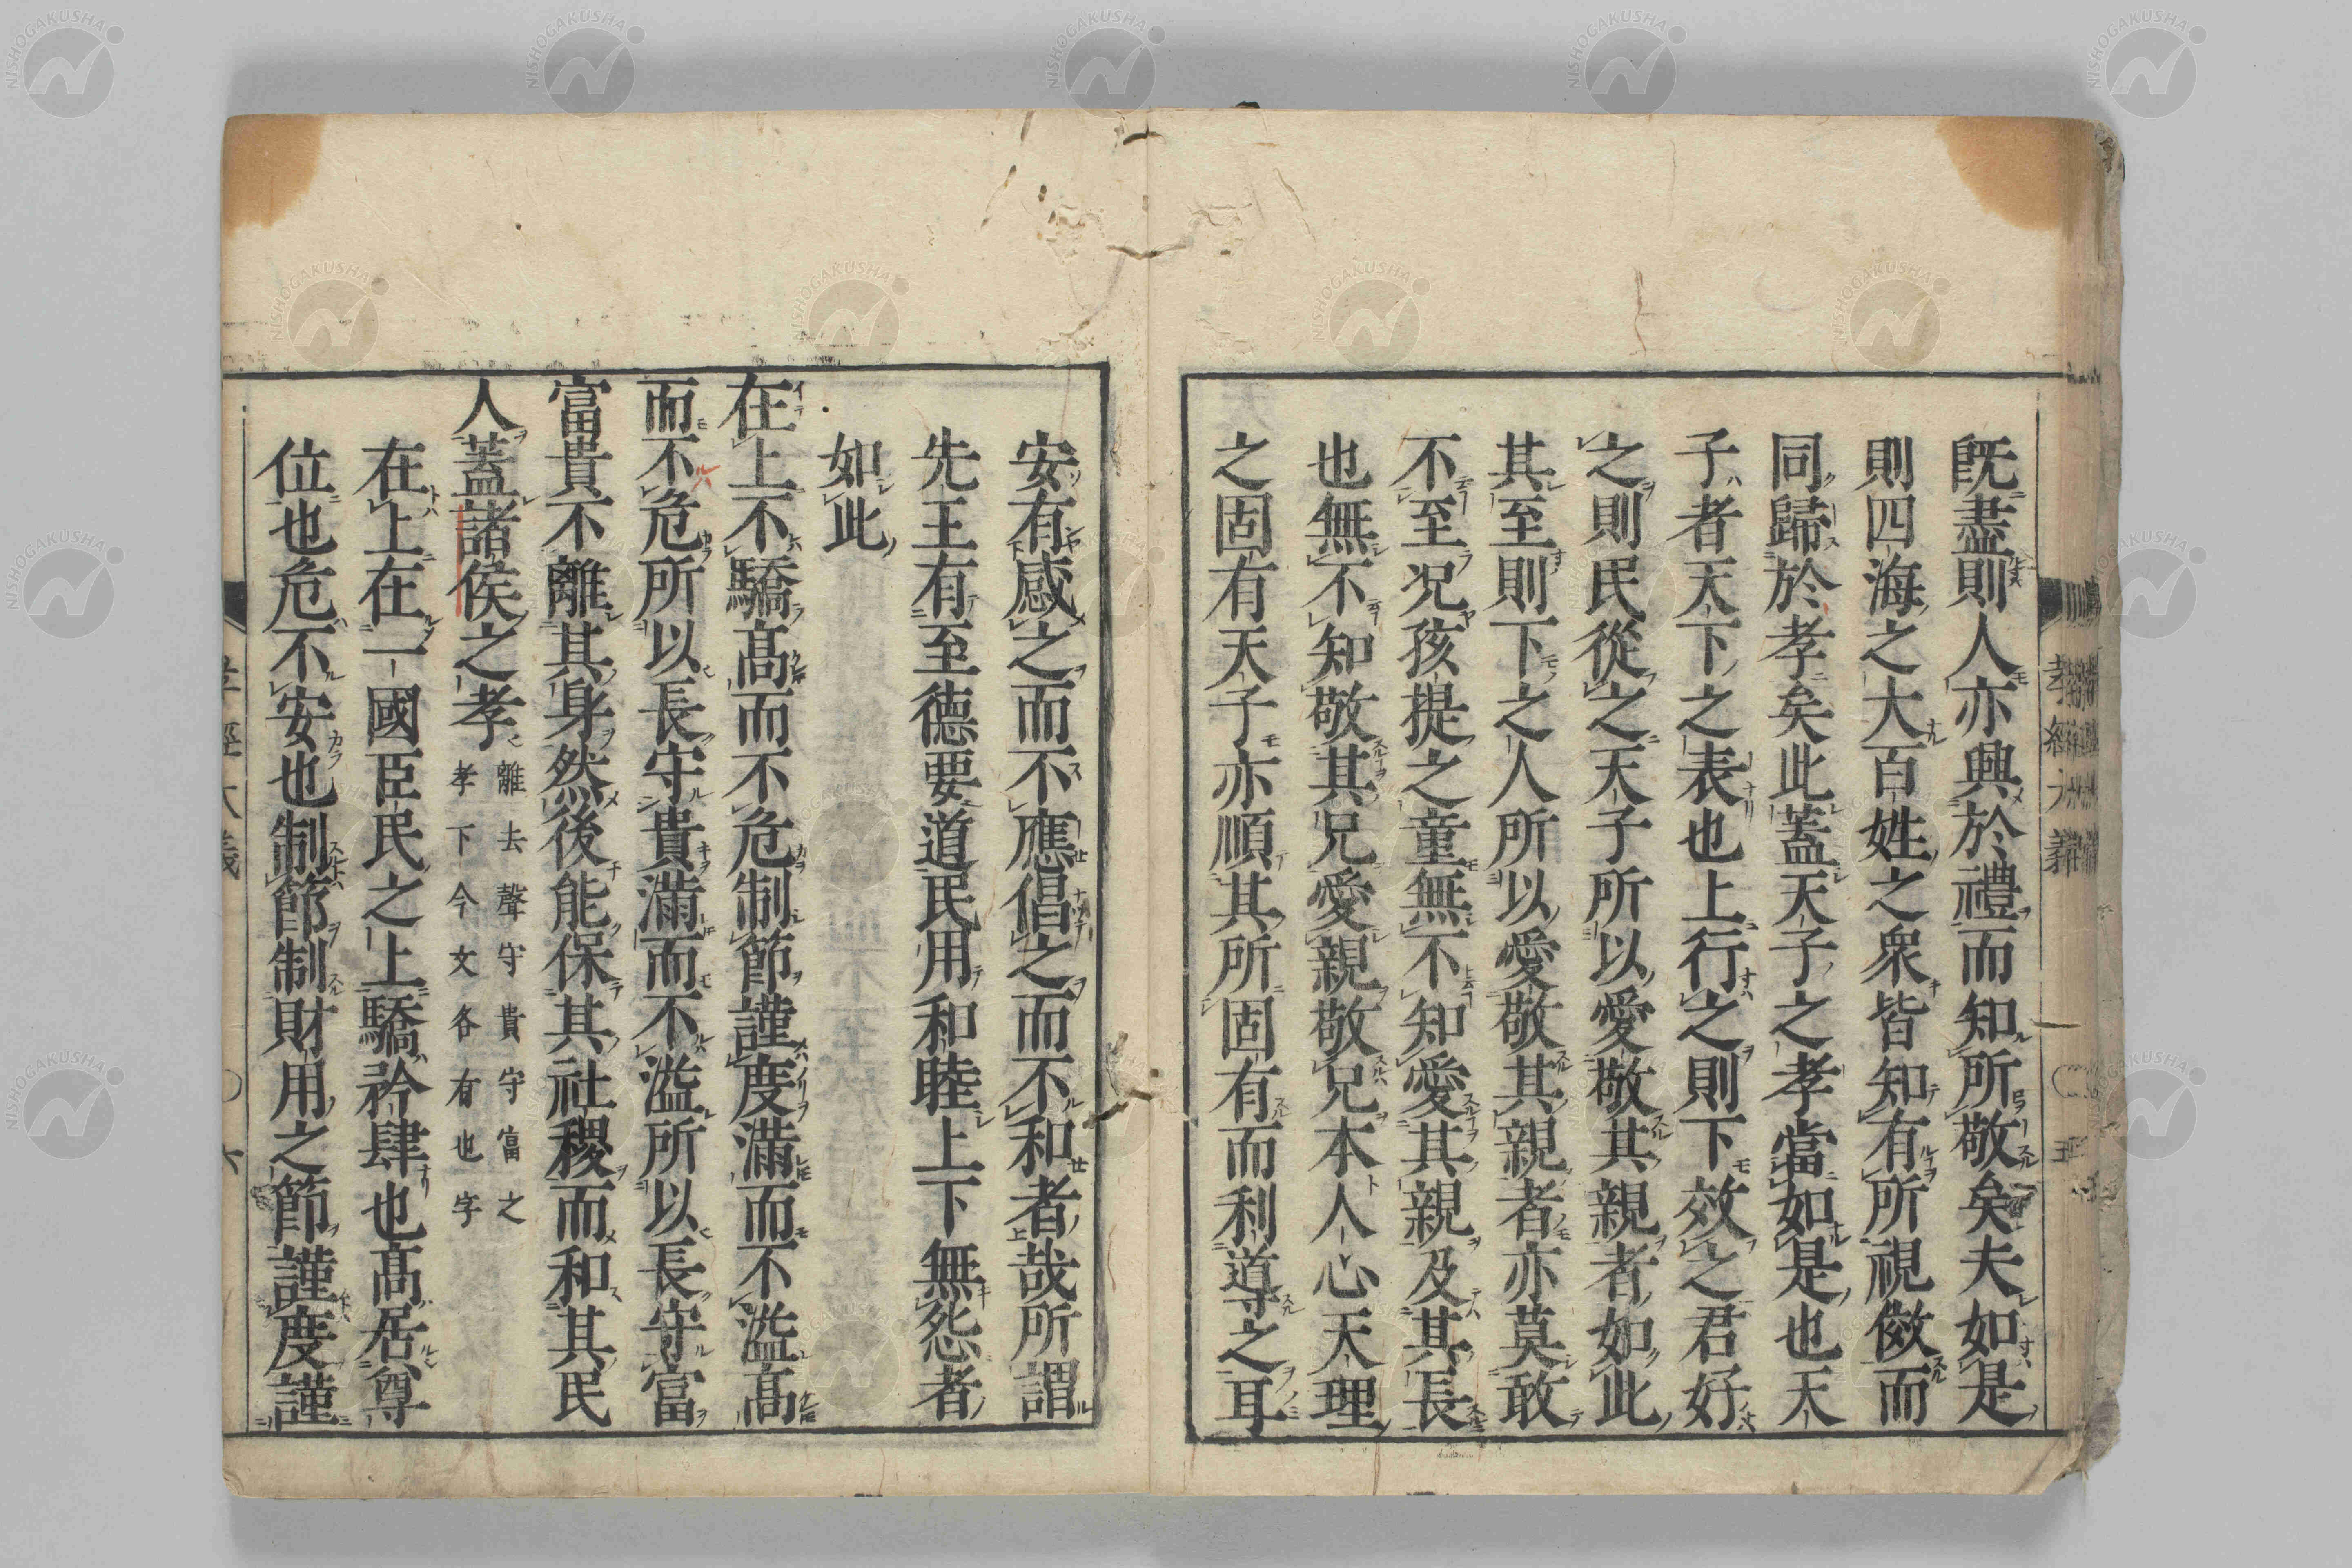 既盡則人亦興於禮而知所敬矣夫如是
則四海之大百姓之衆皆知有所視傚而
同歸於孝矣此蓋天子之孝當如是也天
子者天下之表也上行之則下效之君好
之則民從之天子所以愛敬其親者如此
其至則下之人所以愛敬其親者亦莫敢
不至况孩提之童無不知愛其親及其長
也無不知敬其兄愛親敬兄本人心天理
之固有天子亦順其所固有而利道之耳
安有感之而不應倡之而不和者哉所謂
先王有至德要道民用和睦上下無怨者
如此
在上不驕髙而不危制節謹度滿而不溢髙
而不危所以長守貴滿而不溢所以長守富
富貴不離其身然後能保其社稷而和其民
人蓋諸侯之孝
離去聲守貴守富之
孝下今文各有也字
在上在一國臣民之上驕矜肆也髙居尊
位也危不安也制節制財用之節謹度謹
孝經大義
六